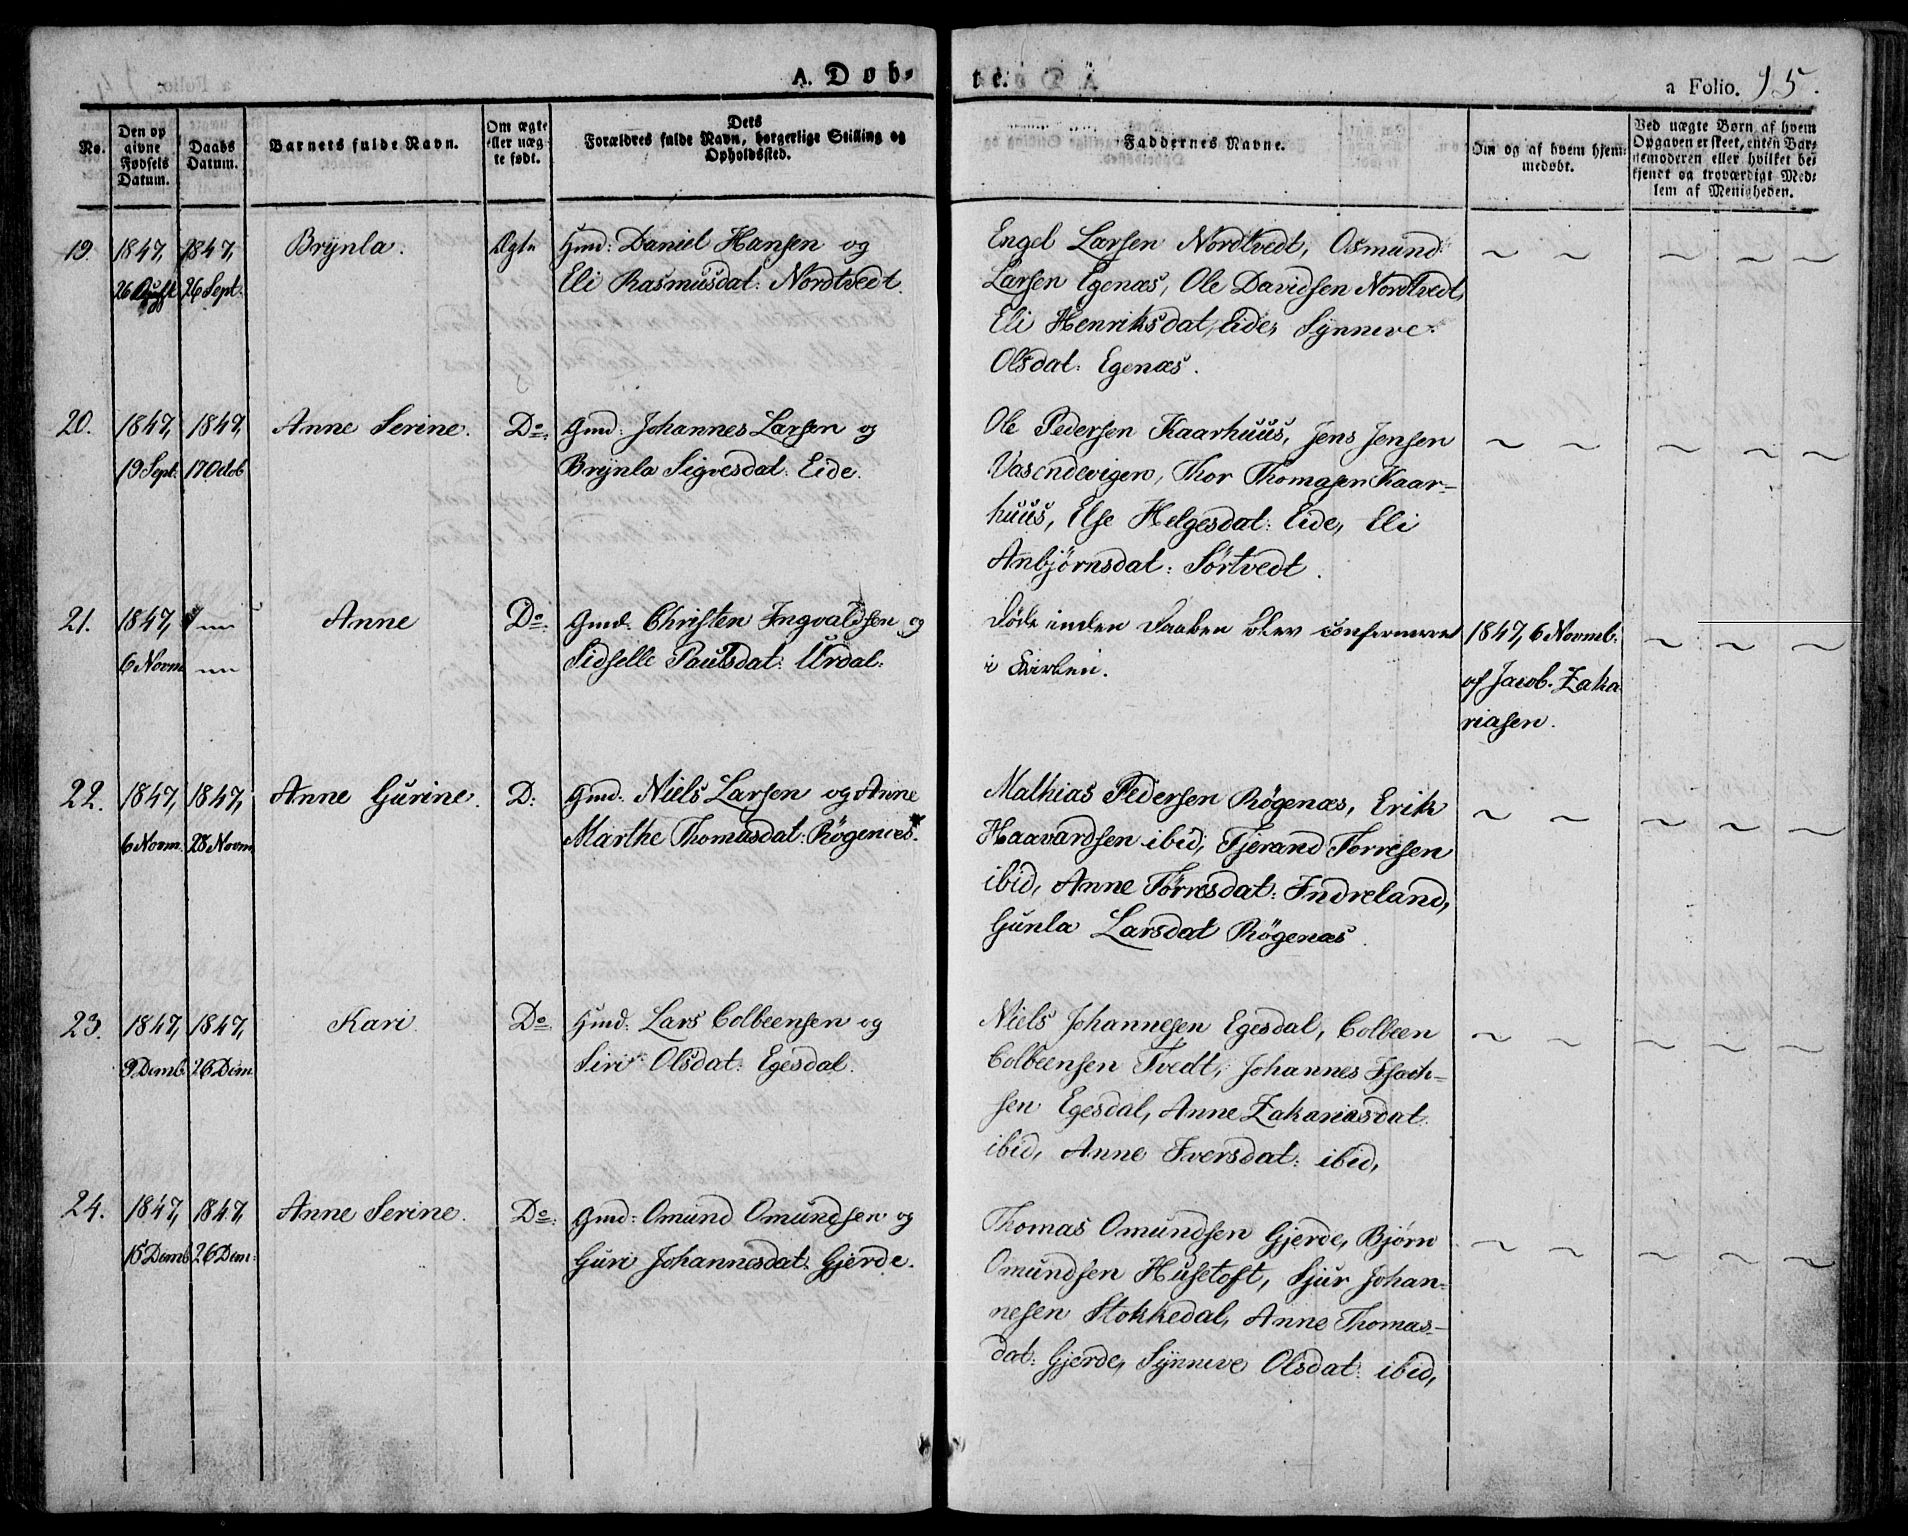 A. Døb-
te.
a Folio. 15.
No.
Den op
givne
Fødsels
Datum.
Daabs
Datum.
Barnets fulde Navn.
Om ægte
eller uæg-
te født.
Dets
Forældres fulde Navn, borgerlige Stilling og
Opholdssted.
Faddernes Navne.
Om og af hvem hjem-
medøbt.
Ved uægte Børn af hvem
Opgaven er skeet, enten Bar-
nemoderen eller hvilket be-
kjendt og troværdigt Med-
lem af Menigheden.
19. 1847, 1847, Brynla. Ægte Gmd: Daniel Hansen og
26 26 Sept: Eli Rasmusdat: Nordtvedt.
Engel Larsen Nordtvedt, Osmund
Larsen Egenæs, Ole Davidsen Nordtvedt,
Eli Henriksdat, Eide, Synneve
Olsdat: Egenæs.
20. 1847, 1847, Anne Serine. Do: Gmd: Johannes Larsen og
19 Sept: 17 Octob Brynla Sigvesdat: Eide.
Ole Pedersen Kaarhuus, Jens Jensen
Vasendevigen, Thor Thomasen Kaar-
huus, Else Helgesdat: Eide, Eli
Anbjørnsdat: Sørtvedt.
21. 1847, Anne Do: Gmd: Christen Ingvaldsen og
6 Novm Sidselle Paulsdat: Urdal:
Døde inden Daaben blev confirmeret
i Kirken.
1847, 6 Novmb:
af Jacob. Zaka
riasen.
22. 1847, 1847, Anne Gurine. D: Gmd: Niels Larsen og Anne
6 Novm. 28 Novm Marthe Thomasdat: Røgenæs.
Mathias Pedersen Røgenæs, Erik
Haavardsen ibid, Tjerand Torresen
ibid, Anne Tørresdat: Indreland,
Gunla Larsdat Røgenæs.
23. 1847, 1847, Kari Do: Gmd: Lars Colbeensen og
9 Demb. 26 Dem Siri Olsdat: Egesdal.
Niels Johannesen Egesdal, Colbeen
Colbeensen Tvedt, Johannes Isach-
sen Egesdal, Anne Zakariasdat
ibid, Anne Iversdat: ibid,
24. 1847, 1847, Anne Serine. Do: Gmd: Omund Omundsen og
15 Demb 26 Dem: Guri Johannesdat: Gjerde.
Thomas Omundsen Gjerde, Bjørn
Omundsen Husetoft, Sjur Johan-
nesen Stokkedal, Anne Thomas-
dat: Gjerde, Synneve Olsdat: ibid,